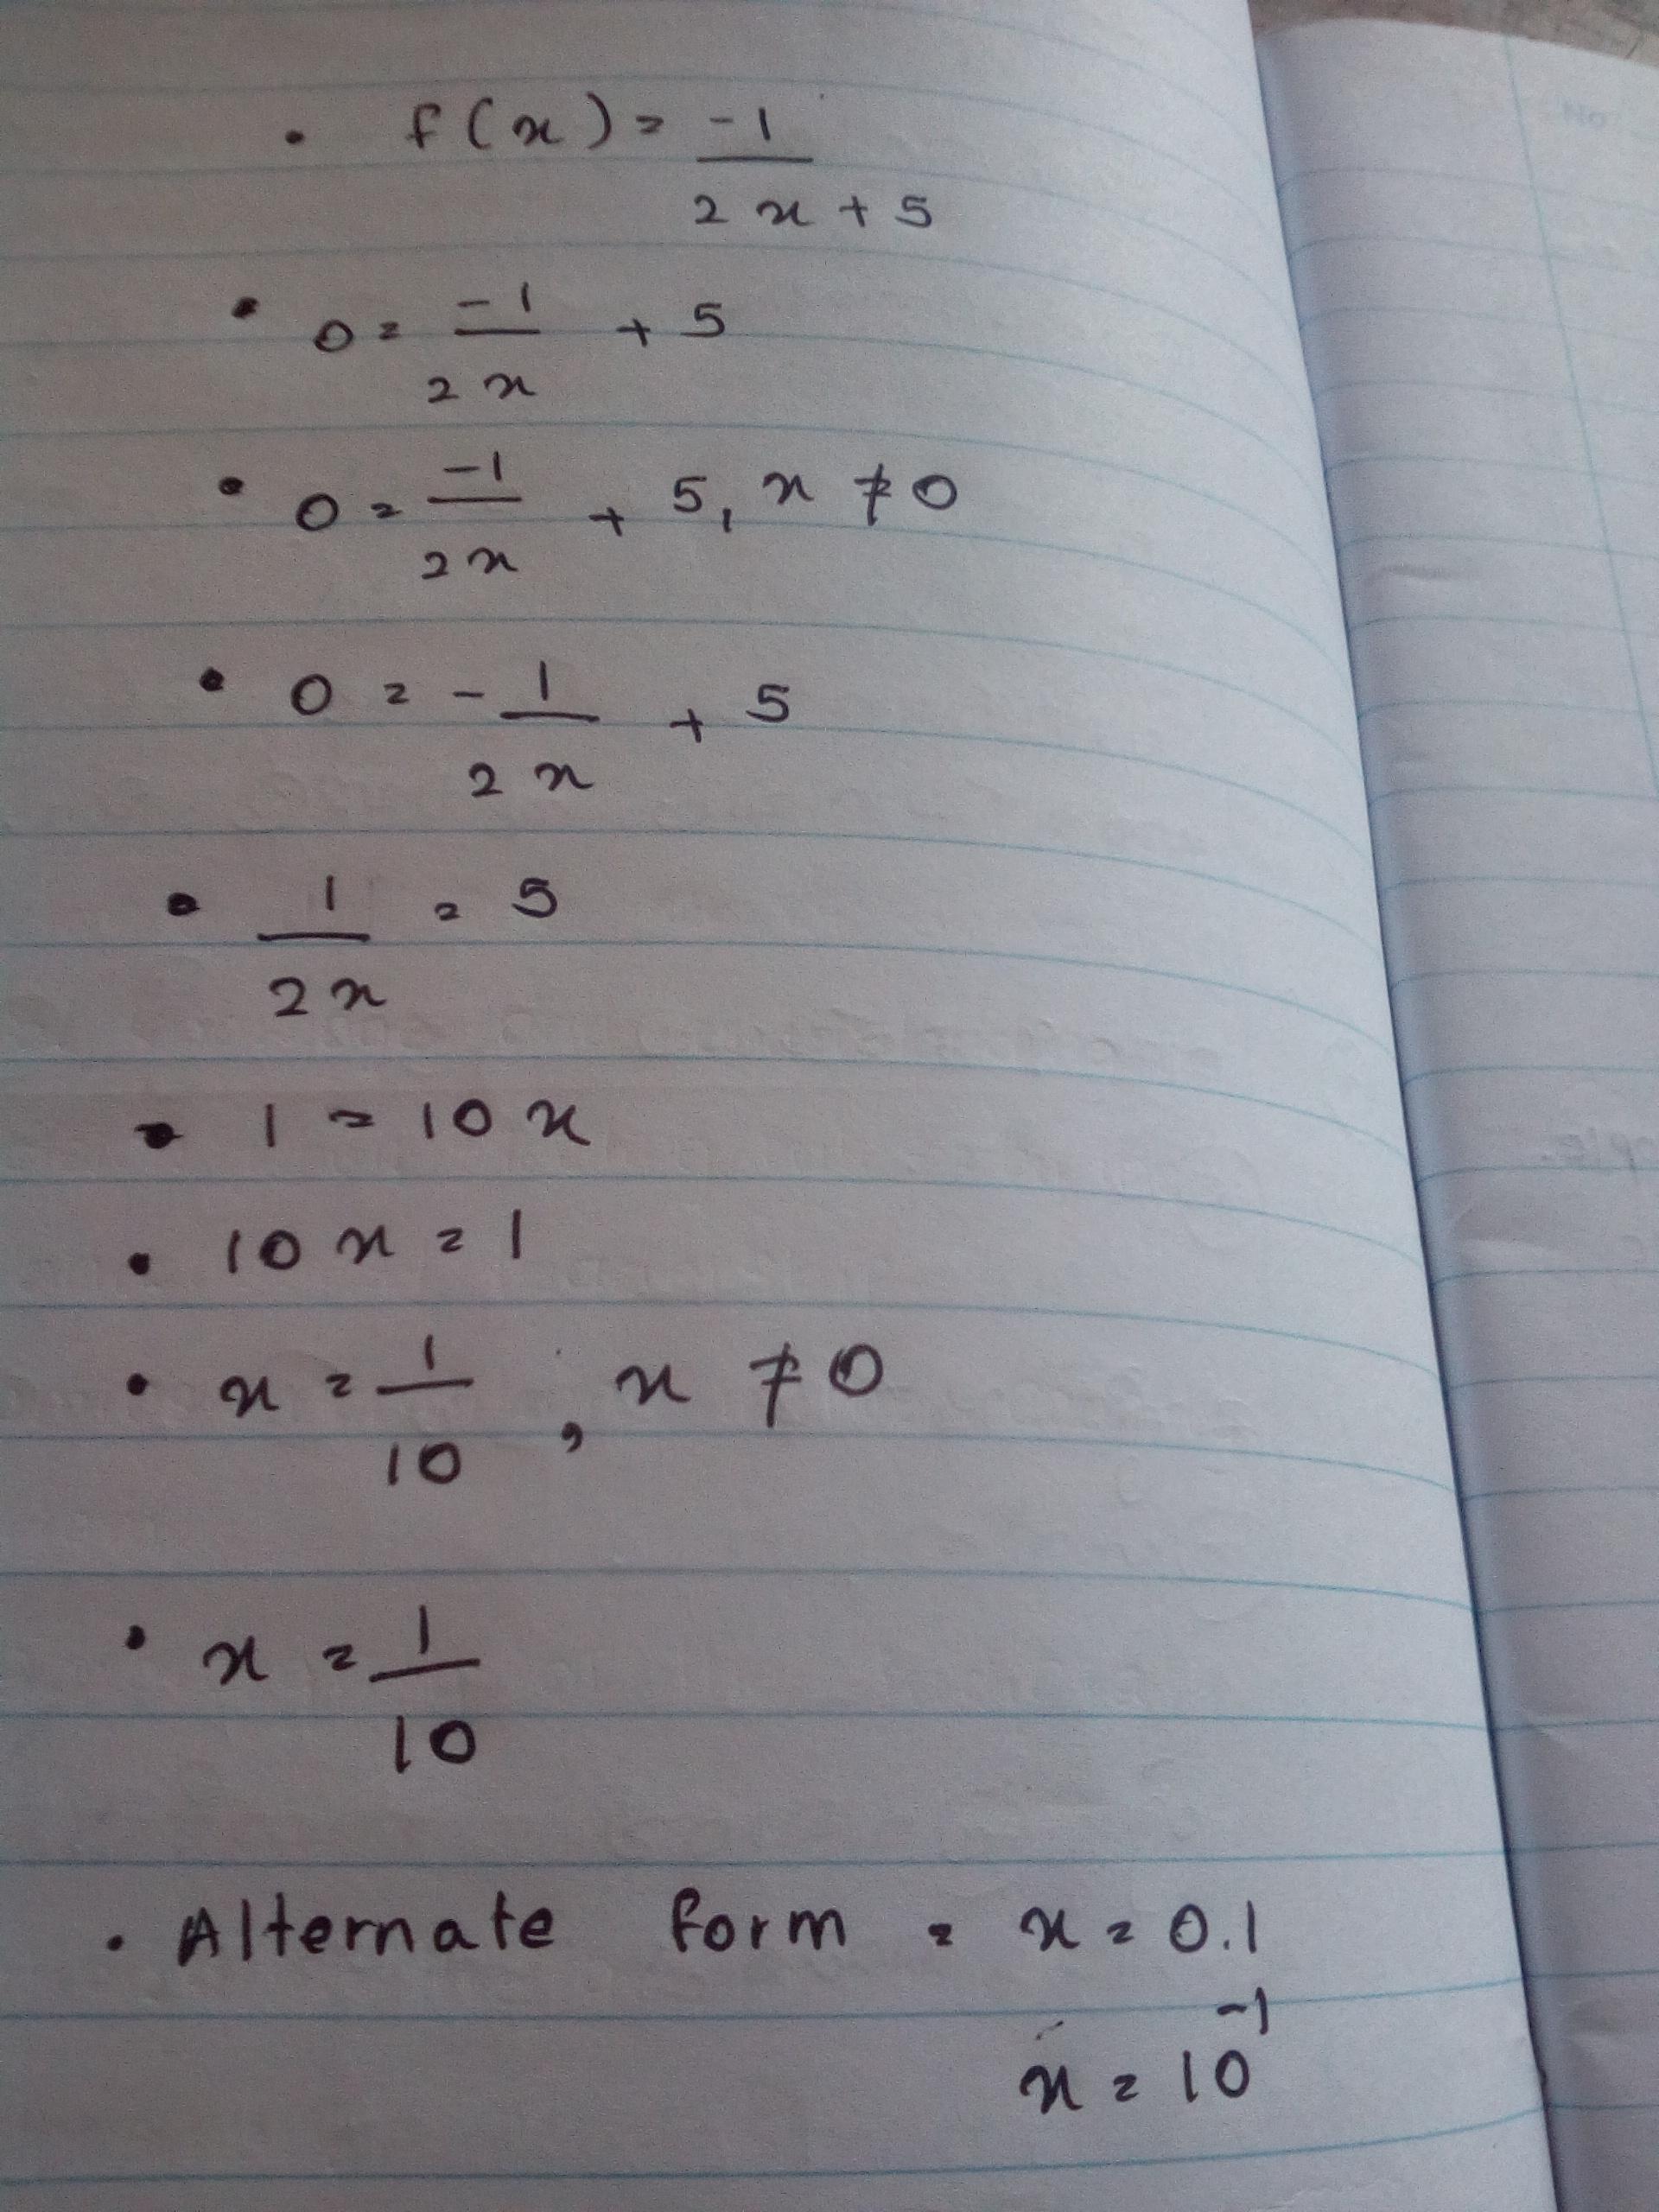 • f(x) = -1/2x + 5
• 0 = -1/2x + 5
• 0 = -1/2x + 5, x ≠ 0
• 0 = - 1/2x + 5
• 1/2x = 5
• 1 = 10x
• 10x = 1
• x = 1/10, x ≠ 0
• x = 1/10
• Alternate form = x = 0.1
x = 10⁻¹